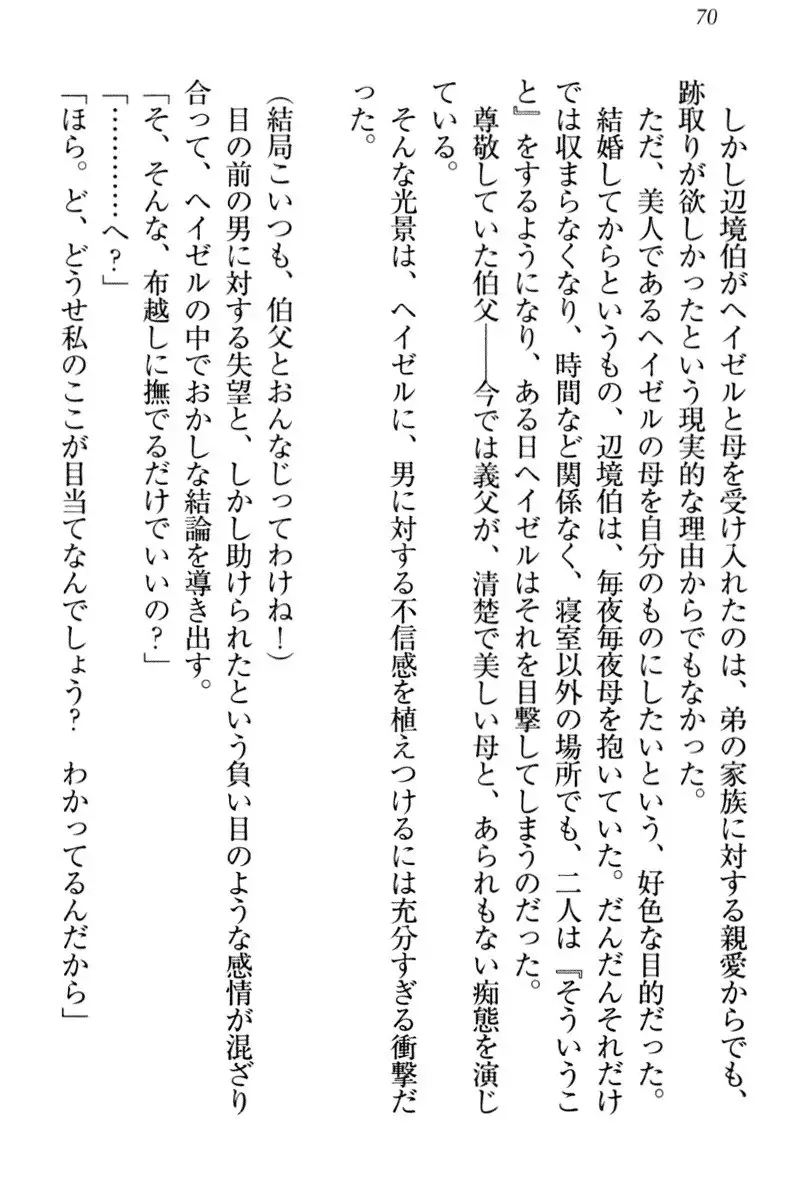 70
しかし辺境伯がヘイゼルと母を受け入れたのは、弟の家族に対する親愛からでも、
跡取りが欲しかったという現実的な理由からでもなかった。
ただ、美人であるヘイゼルの母を自分のものにしたいという、好色な目的だった。
結婚してからというもの、辺境伯は、毎夜毎夜母を抱いていた。だんだんそれだけ
では収まらなくなり、時間など関係なく、寝室以外の場所でも、二人は『そういうこ
と』をするようになり、ある日ヘイゼルはそれを目撃してしまうのだった。
尊敬していた伯父――今では義父が、清楚で美しい母と、あられもない痴態を演じ
ている。
そんな光景は、ヘイゼルに、男に対する不信感を植えつけるには充分すぎる衝撃だ
った。
（結局こいつも、伯父とおんなじってわけね！）
目の前の男に対する失望と、しかし助けられたという負い目のような感情が混ざり
合って、ヘイゼルの中でおかしな結論を導き出す。
「そ、そんな、布越しに撫でるだけでいいの？」
「…………へ？」
「ほら。ど、どうせ私のここが目当てなんでしょう？　わかってるんだから」